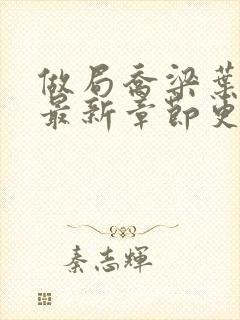 做局喬梁葉
最新章節更
秦志輝